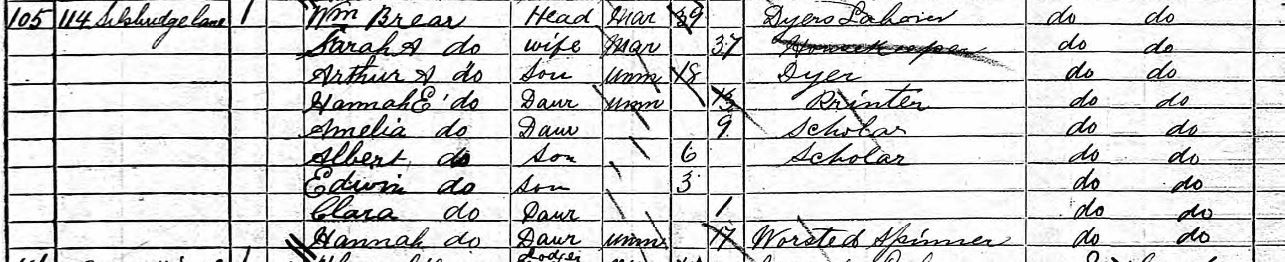 105 114 Silsbridge Lane 1 Wm Brear Head Mar 39 Dyers Labourer do do
Sarah A do wife Mar 37 Housekeeper do do
Arthur A do Son unm 18 Dyer do do
Hannah E do Daur unm 13 Printer do do
Amelia do Daur 9 Scholar do do
Albert do Son 6 Scholar do do
Edwin do Son 3 do do
Clara do Daur 1 do do
Hannah do Daur unm 17 Worsted Spinner do do
Lodger